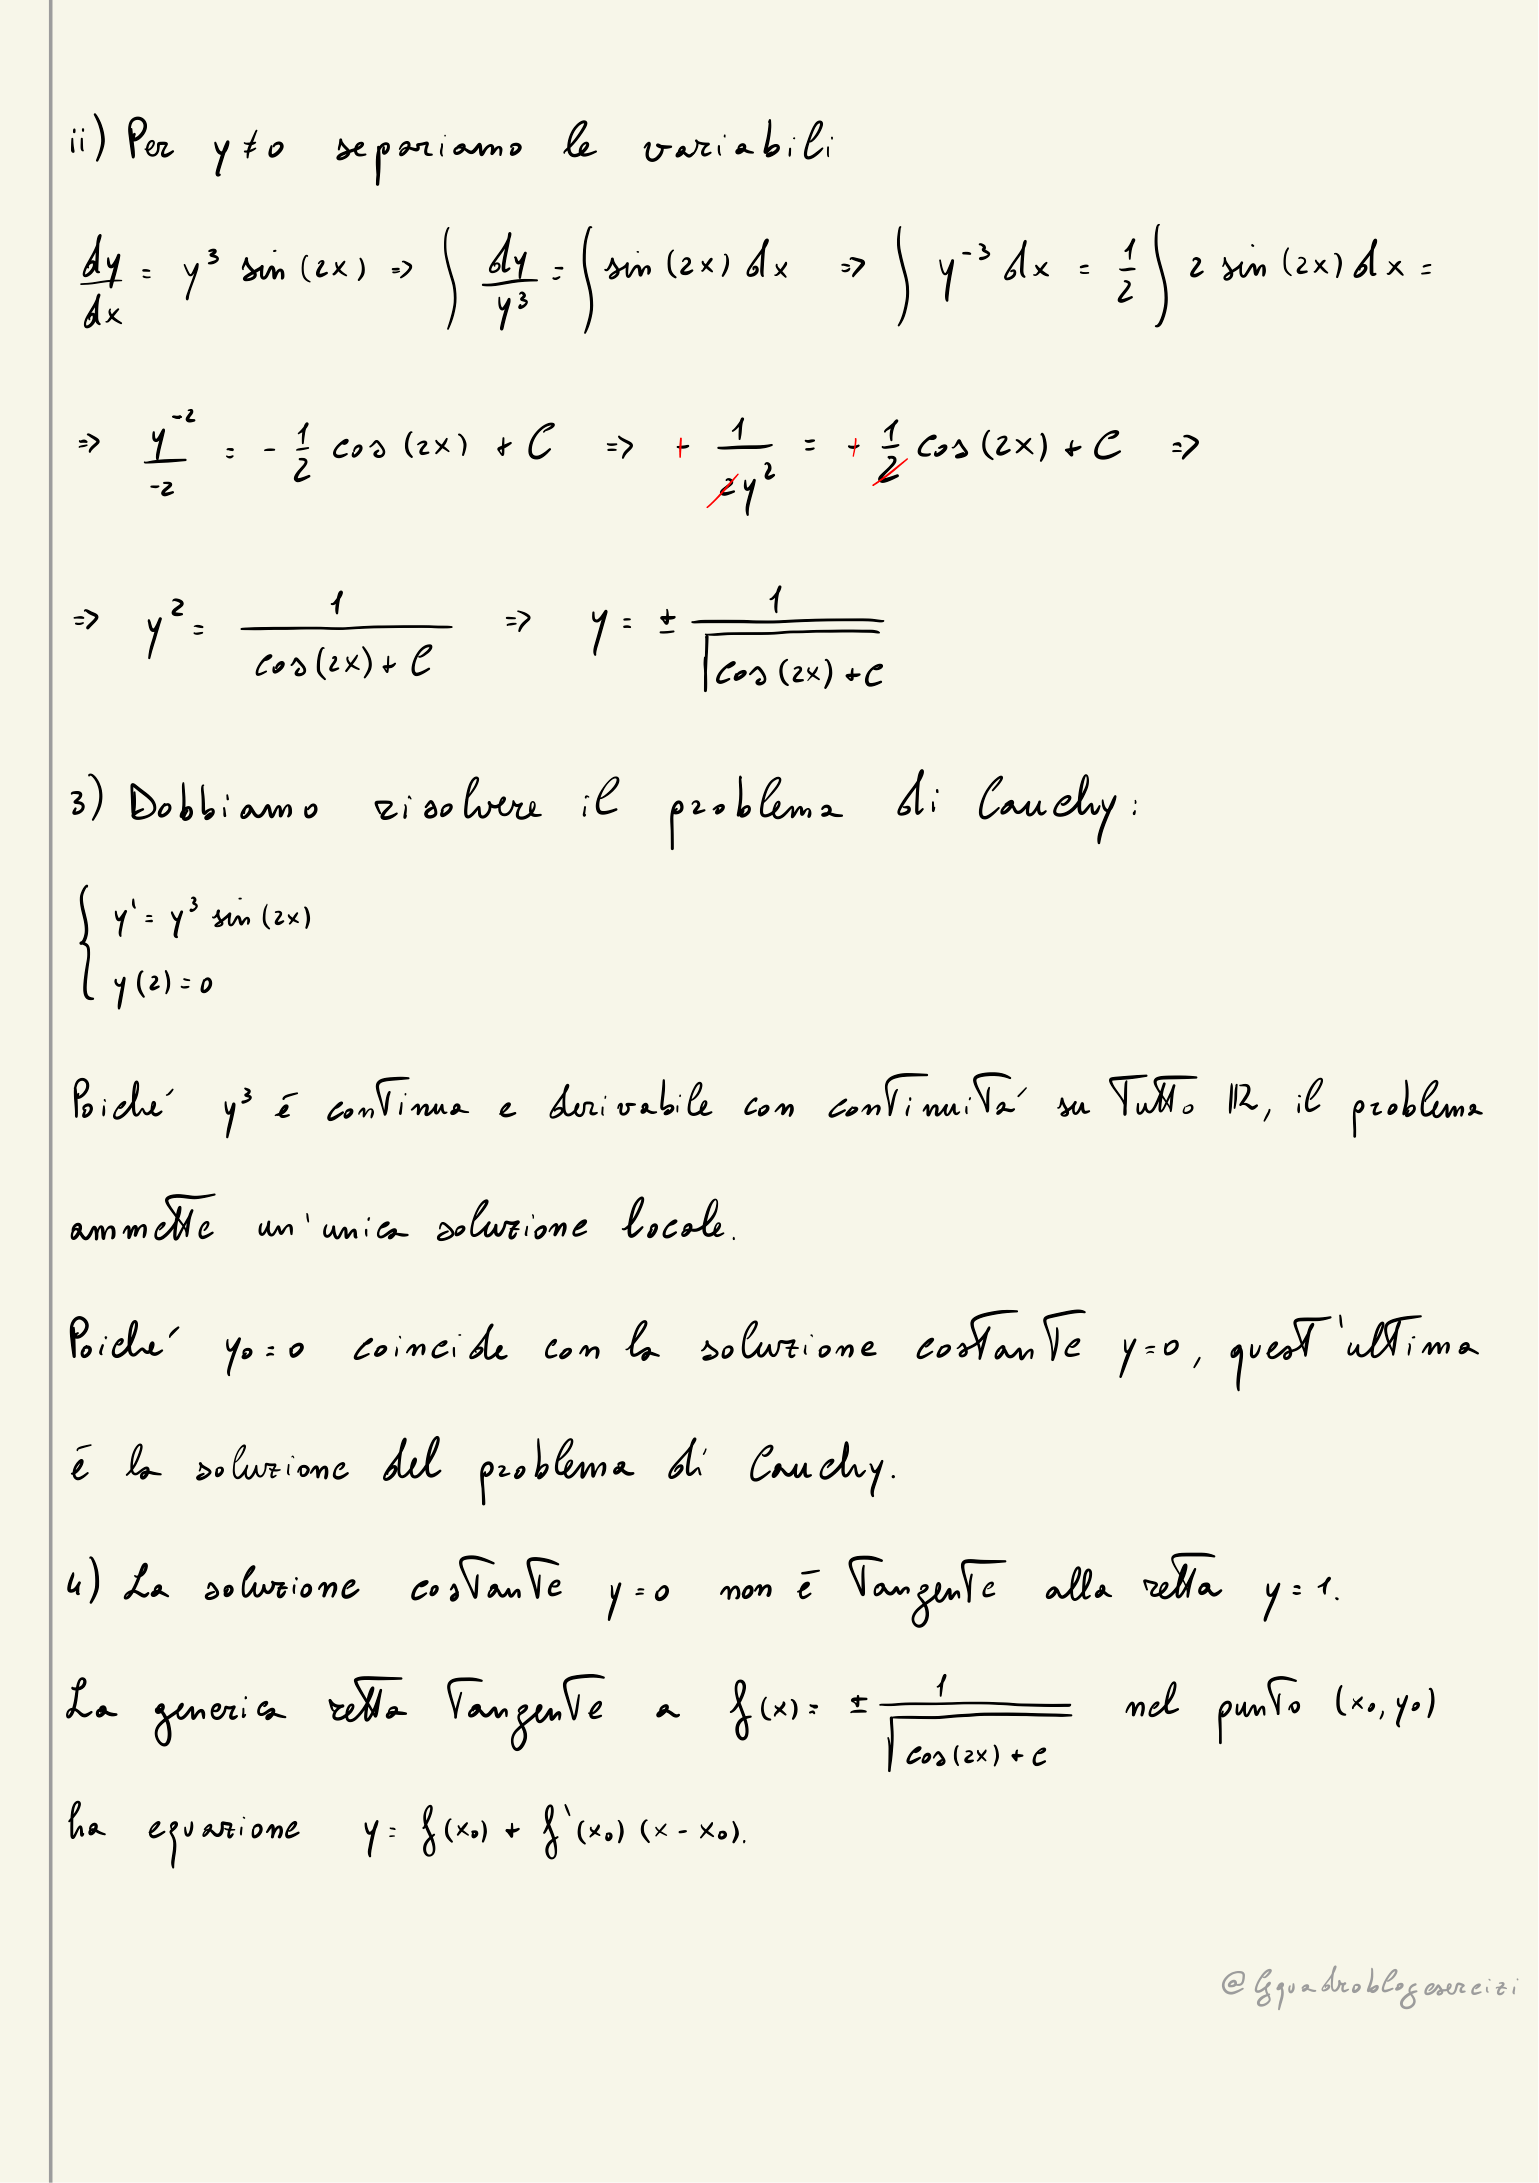 ii) Per y≠0 separiamo le variabili
dy/dx = y³ sin(2x) => ∫ dy/y³ = ∫ sin(2x) dx => ∫ y⁻³ dx = 1/2 ∫ 2 sin(2x) dx =
=> y⁻²/-2 = - 1/2 cos(2x) + C => + 1/2y² = + 1/2 cos(2x) + C =>
=> y² = 1/(cos(2x) + C) => y = ± 1/√(cos(2x) + C)
3) Dobbiamo risolvere il problema di Cauchy:
{ y' = y³ sin(2x)
y(2) = 0
Poiché y³ é continua e derivabile con continuitá su tutto ℝ, il problema
ammette un'unica soluzione locale.
Poiché y₀=0 coincide con la soluzione costante y=0, quest'ultima
é la soluzione del problema di Cauchy.
4) La soluzione costante y=0 non é tangente alla retta y=1.
La generica retta tangente a f(x) = ± 1/√(cos(2x) + C) nel punto (x₀,y₀)
ha equazione y = f(x₀) + f'(x₀) (x - x₀).
@Gquadroblogesercizi